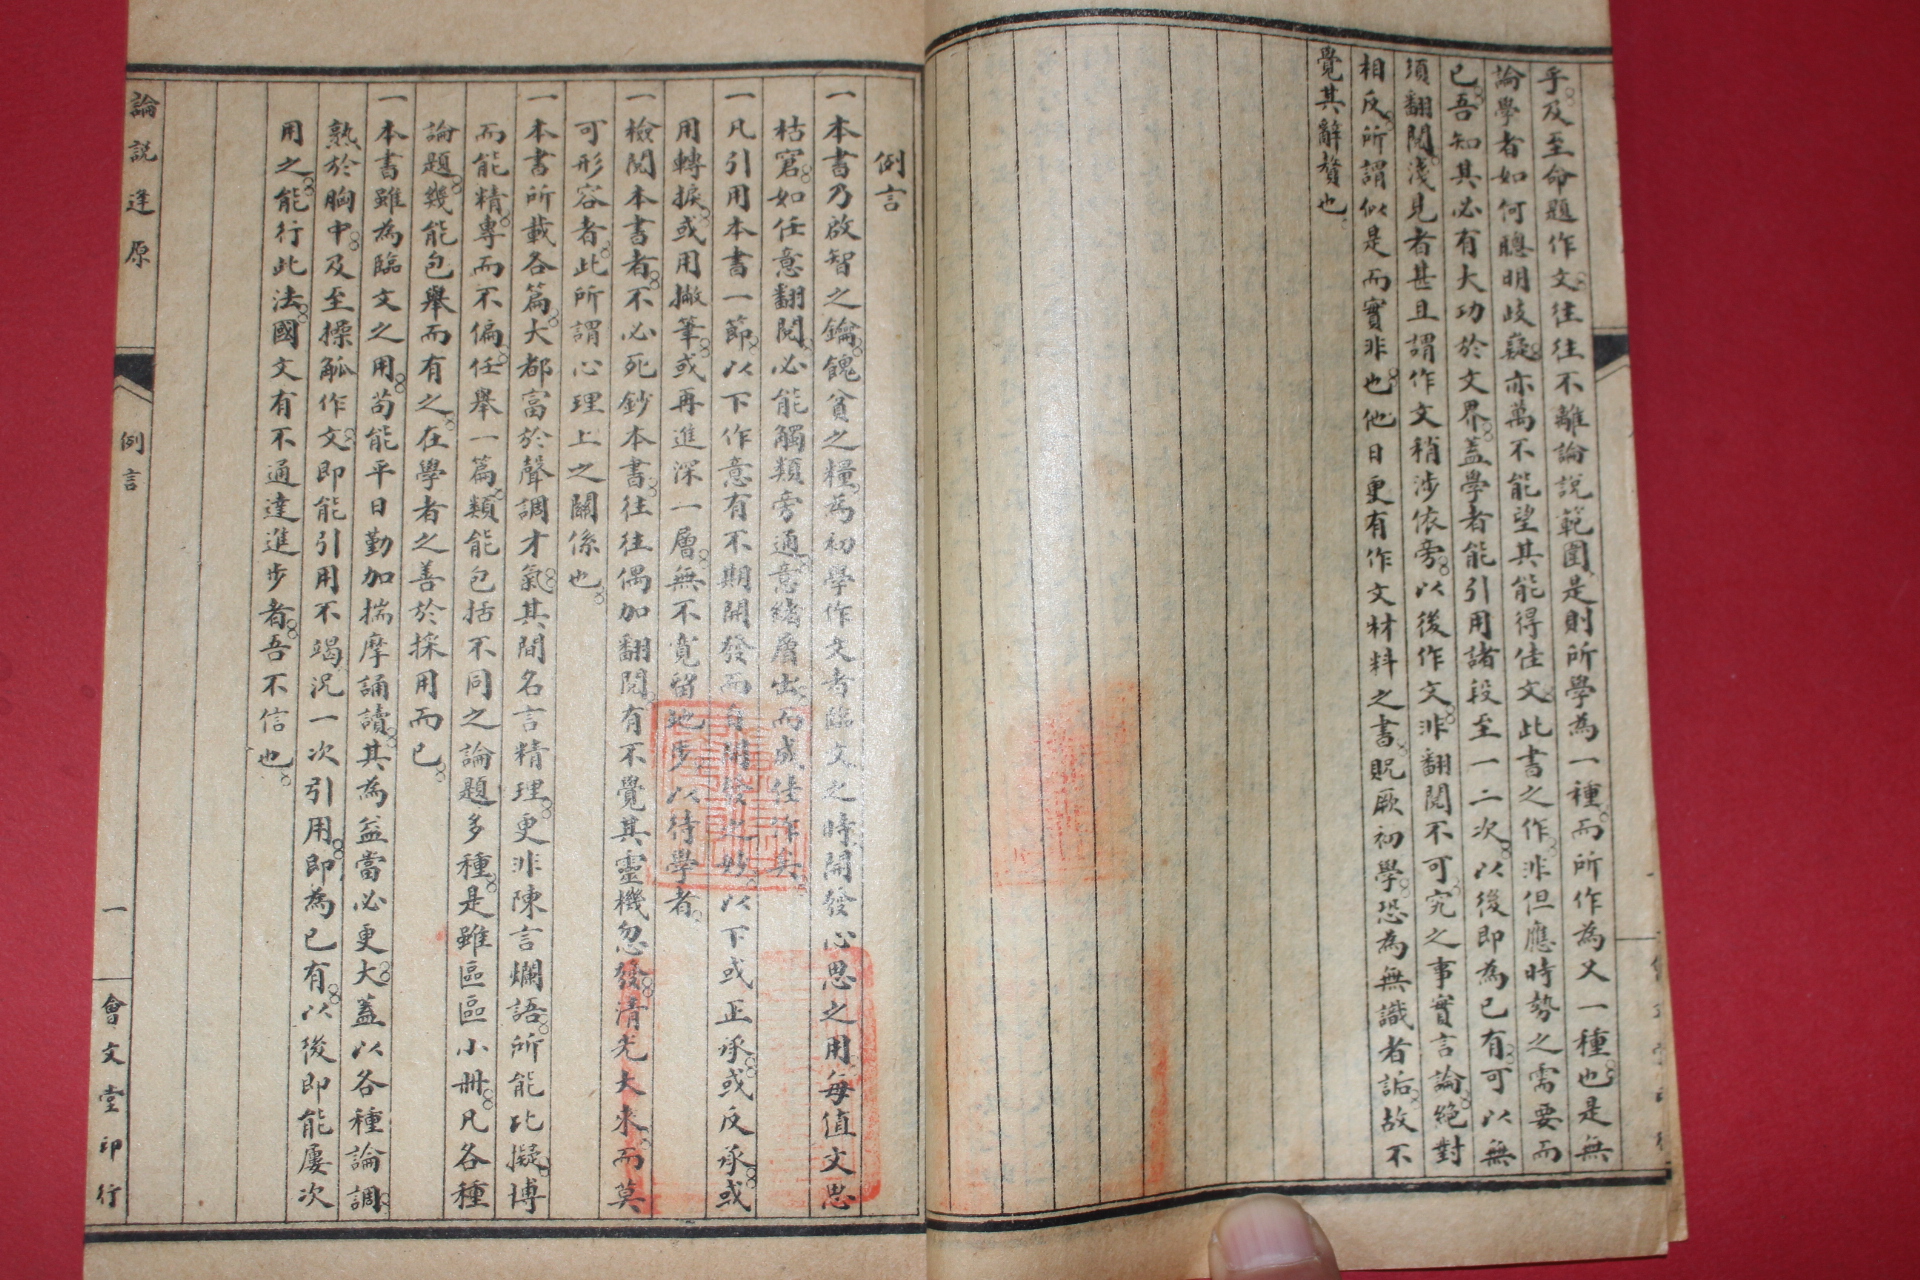 乎及至命題作文往往不離論說範圍是則所學為一種而所作為又一種也是無
論學者如何聰明岐嶷亦萬不能望其能得佳文此書之作非但應時勢之需要而
已吾知其必有大功於文界蓋學者能引用諸段至一二次以後即為已有可以無
須翻閱淺見者甚且謂作文稍涉依旁以後作文非翻閱不可究之事實言論絕對
相反所謂似是而實非也他日更有作文材料之書貺厥初學恐為無識者詬故不
覺其辭贅也
例言
一本書乃啟智之鑰餽貧之糧為初學作文者臨文之時開發心思之用每值文思
枯窘如任意翻閱必能觸類旁通意緒層出而成佳作矣
一凡引用本書一節以下作意有不期開發而自開發之妙以下或正承或反承或
用轉捩或用撇筆或再進深一層無不寬留地步以待學者
一檢閱本書者不必死鈔本書往往偶加翻閱有不覺其靈機忽發清光大來而莫
可形容者此所謂心理上之關係也
一本書所載各篇大都富於聲調才氣其間名言精理更非陳言爛語所能比擬博
而能精專而不偏任舉一篇類能包括不同之論題多種是雖區區小冊凡各種
論題幾能包舉而有之在學者之善於採用而已
一本書雖為臨文之用苟能平日勤加揣摩誦讀其為益當必更大蓋以各種論調
熟於胸中及至操觚作文即能引用不竭況一次引用即為已有以後即能屢次
用之能行此法國文有不通達進步者吾不信也
論說逢原
例言
一
會文堂印行